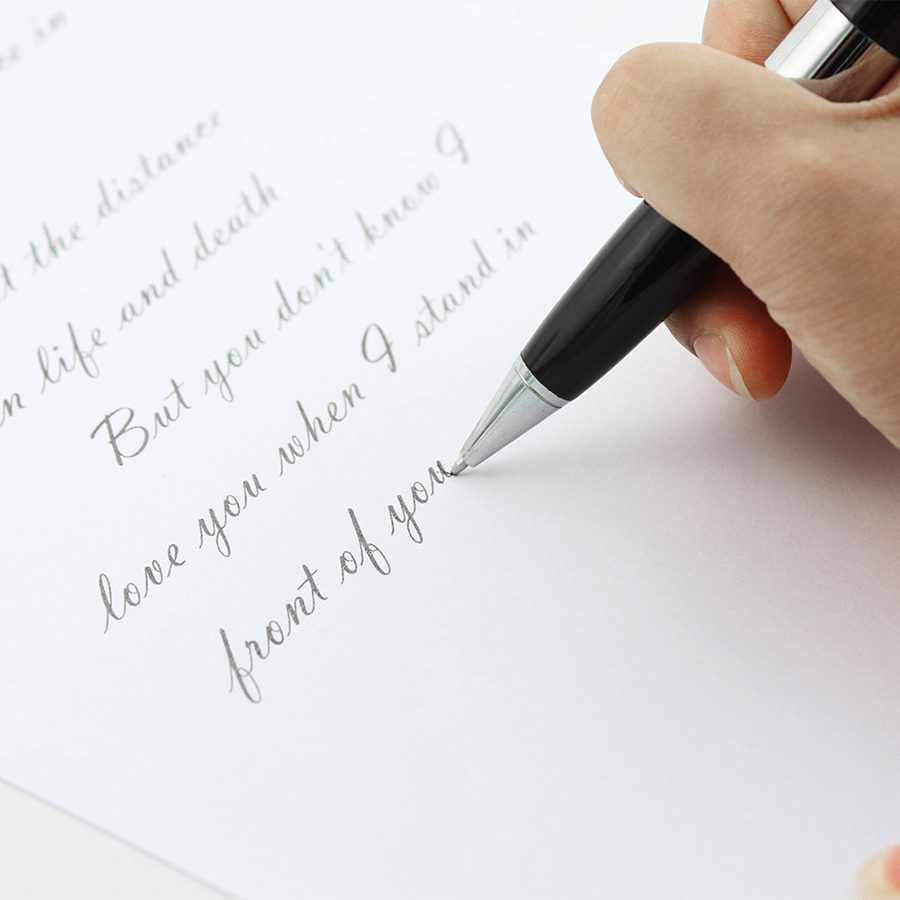 in
the distance
life and death
But you don't know I
love you when I stand in
front of you